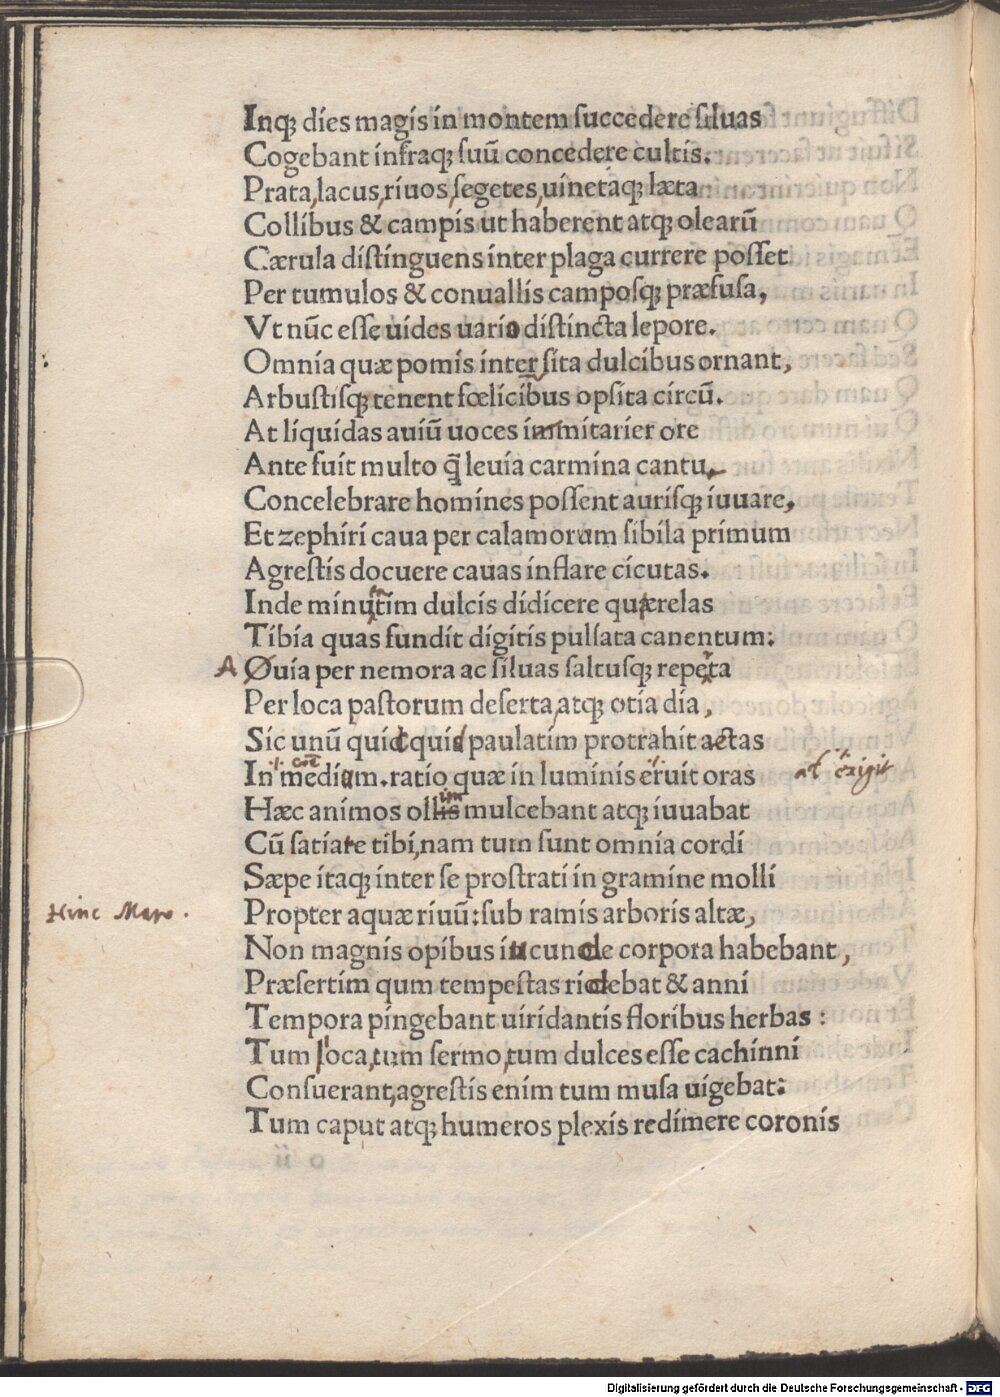 Inqꝫ dies magis in montem succedere siluas
Cogebant infraqꝫ suū concedere cultis.
Prata, lacus, riuos, segetes, uinetaqꝫ læta
Collibus & campis ut haberent atqꝫ olearū
Cærula distinguens inter plaga currere posset
Per tumulos & conuallis camposqꝫ præfusa,
Vt nūc esse uides uario distincta lepore.
Omnia quæ pomis inter sita dulcibus ornant,
Arbustisqꝫ tenent fœlicibus opsita circū.
At liquidas auiū uoces immitarier ore
Ante fuit multo q̄ leuia carmina cantu,
Concelebrare homines possent aurisqꝫ iuuare,
Et zephiri caua per calamorum sibila primum
Agrestis docuere cauas inflare cicutas.
Inde minutim dulcis didicere quærelas
Tibia quas fundit digitis pulsata canentum:
A Ouia per nemora ac siluas saltusqꝫ repeta
Per loca pastorum deserta, atqꝫ otia dia,
Sic unū quicquid paulatim protrahit aetas
In medium. ratio quæ in luminis eruit oras at exigit
Hæc animos ollis mulcebant atqꝫ iuuabat
Cū satiate tibi, nam tum sunt omnia cordi
Sæpe itaqꝫ inter se prostrati in gramine molli
Hinc Maro. Propter aquæ riuū: sub ramis arboris altæ,
Non magnis opibus iucunde corpora habebant,
Præsertim qum tempestas ridebat & anni
Tempora pingebant uiridantis floribus herbas:
Tum ioca, tum sermo, tum dulces esse cachinni
Consuerant, agrestis enim tum musa uigebat:
Tum caput atqꝫ humeros plexis redimere coronis
Digitalisierung gefördert durch die Deutsche Forschungsgemeinschaft - DFG